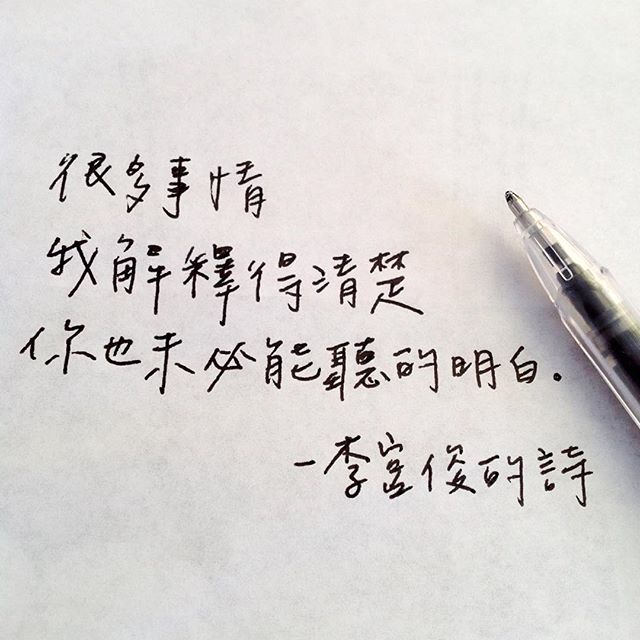 很多事情
我解釋得清楚
你也未必能聽的明白。
－李宮俊的詩